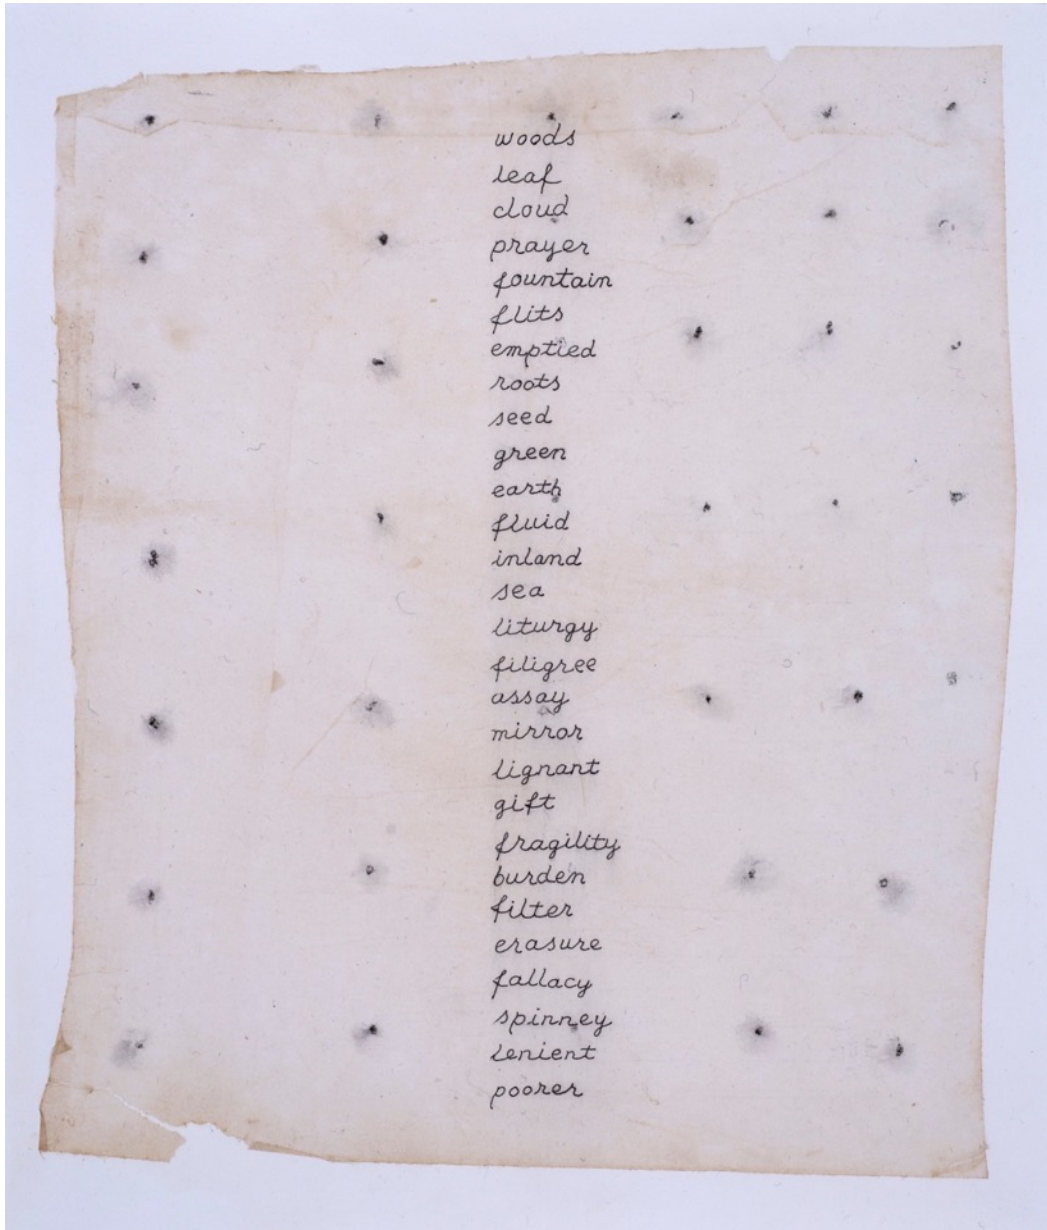 woods
leaf
cloud
prayer
fountain
flits
emptied
roots
seed
green
earth
fluid
inland
sea
liturgy
filigree
assay
mirror
lignant
gift
fragility
burden
filter
erasure
fallacy
spinney
lenient
poorer